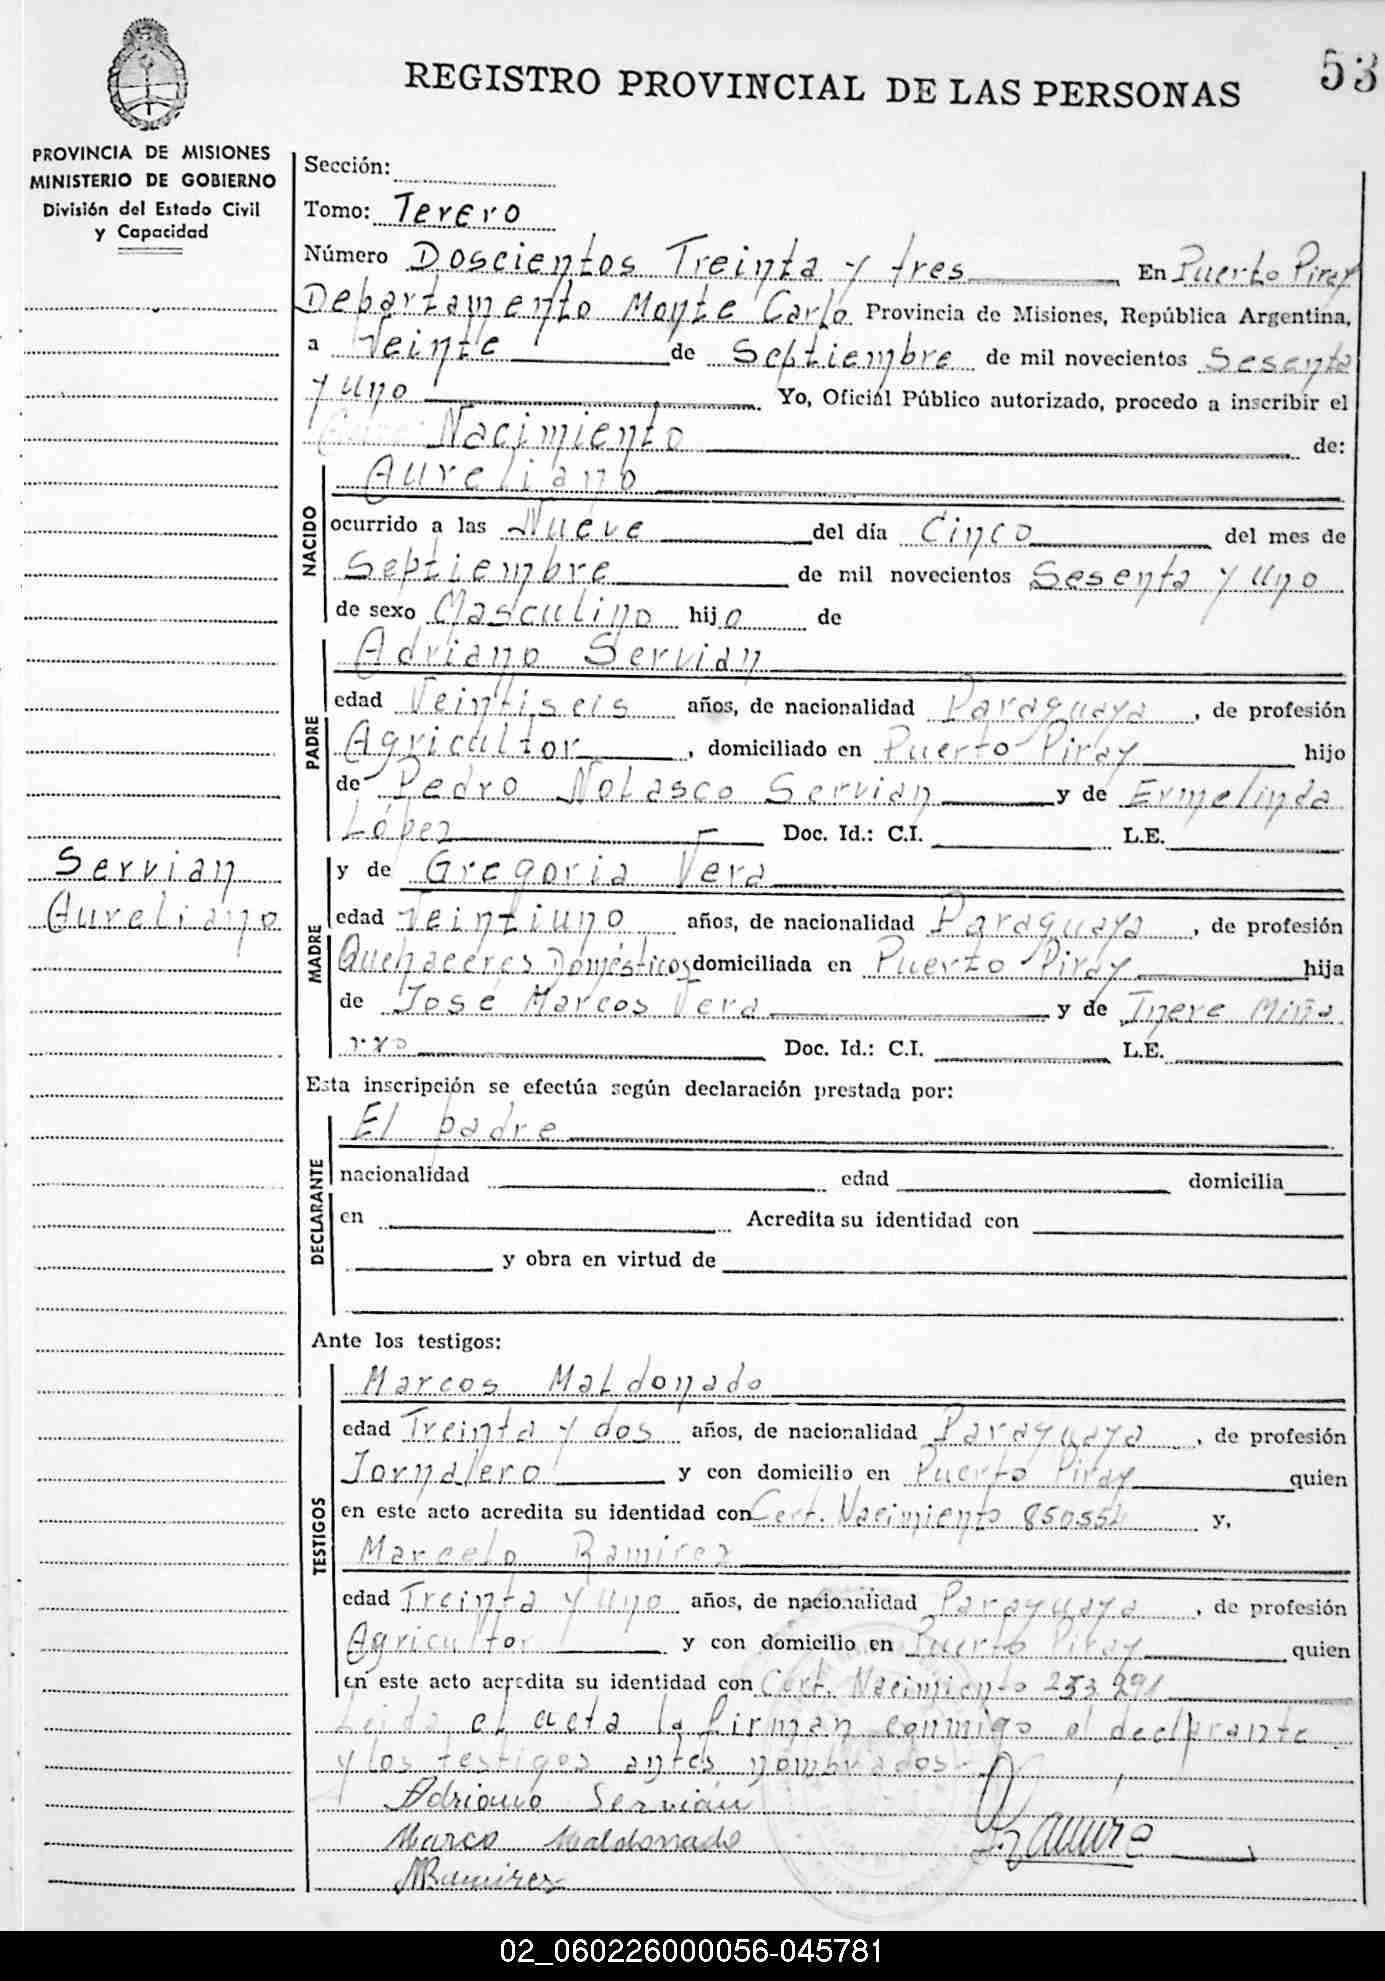 53
REGISTRO PROVINCIAL DE LAS PERSONAS
PROVINCIA DE MISIONES
MINISTERIO DE GOBIERNO
División del Estado Civil
y Capacidad
Sección:
Tomo: Terero
Número Doscientos Treinta y tres En Puerto Piray
Departamento Monte Carlo Provincia de Misiones, República Argentina,
a Veinte de Septiembre de mil novecientos Sesenta
y uno Yo, Oficial Público autorizado, procedo a inscribir el
Nacimiento de:
NACIDO
Aureliano
ocurrido a las Nueve del día Cinco del mes de
Septiembre de mil novecientos Sesenta y uno
de sexo Masculino hijo de
PADRE
Adriano Servian
edad Veintiseis años, de nacionalidad Paraguaya, de profesión
Agricultor, domiciliado en Puerto Piray hijo
de Pedro Nolasco Servian y de Ermelinda
López Doc. Id.: C.I. L.E.
Servian
Aureliano
MADRE
y de Gregoria Vera
edad Veintiuno años, de nacionalidad Paraguaya, de profesión
Quehaceres Domésticos domiciliada en Puerto Piray hija
de José Marcos Vera y de
Doc. Id.: C.I. L.E.
Esta inscripción se efectúa según declaración prestada por:
DECLARANTE
El padre
nacionalidad edad domicilia
en Acredita su identidad con
y obra en virtud de
Ante los testigos:
TESTIGOS
Marcos Maldonado
edad Treinta y dos años, de nacionalidad Paraguaya, de profesión
Jornalero y con domicilio en Puerto Piray quien
en este acto acredita su identidad con Cert. Nacimiento 850554 y,
Marcelo Ramirez
edad Treinta y uno años, de nacionalidad Paraguaya, de profesión
Agricultor y con domicilio en Puerto Piray quien
en este acto acredita su identidad con Cert. Nacimiento 253.291
Leida el acta la firman conmigo el declarante
y los testigos antes nombrados
Adriano Servian
Marco Maldonado
MRamirez
02_060226000056-045781